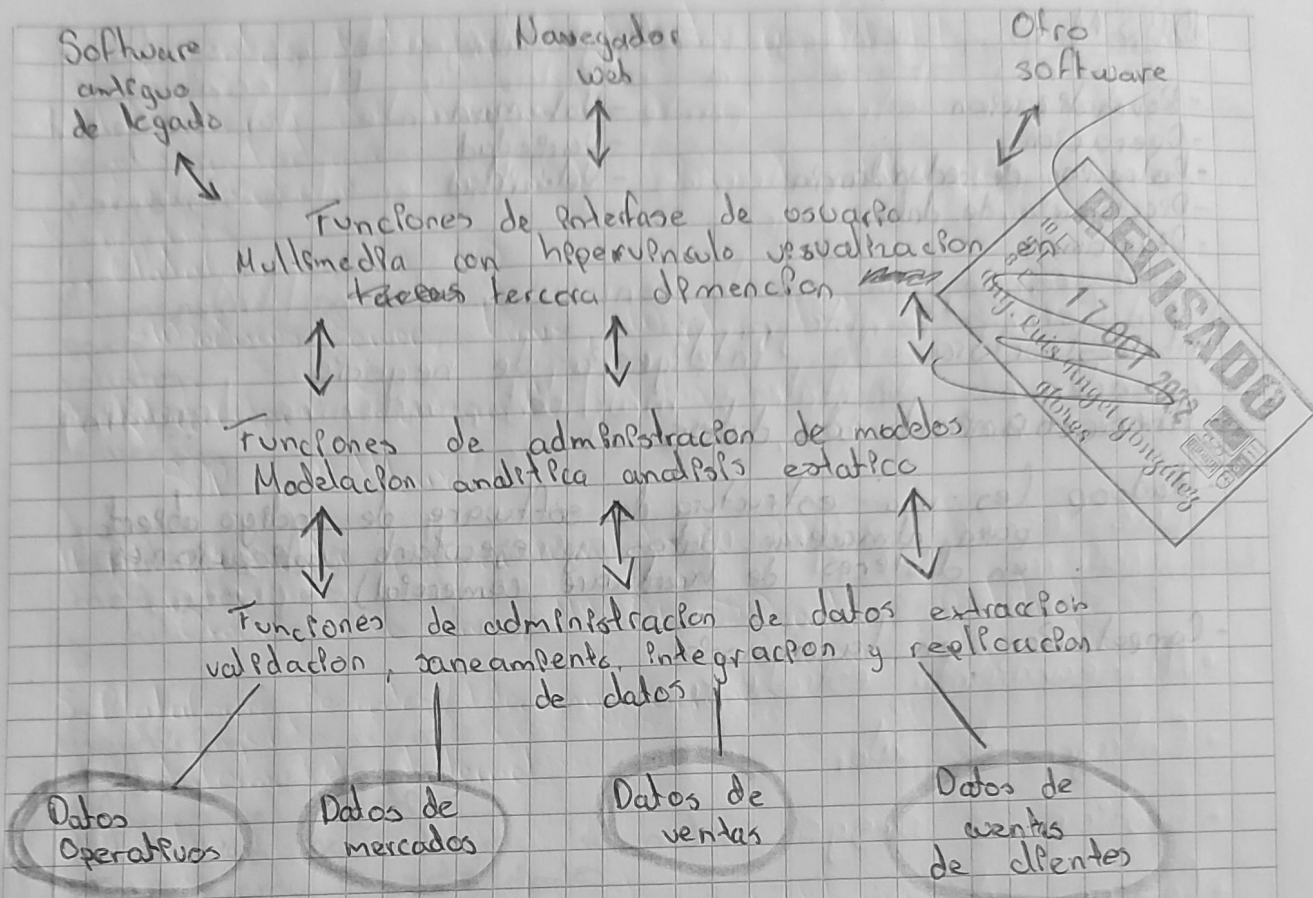 Software
antiguo
de legado
Navegador
web
Otro
software
Funciones de interfase de usuario
Multimedia con hipervinculo visualizacion en
tercera dimencion
Funciones de administracion de modelos
Modelacion analitica analisis estatico
Funciones de administracion de datos extraccion
validacion, saneamiento, integracion y replicacion
de datos
Datos
Operativos
Datos de
mercados
Datos de
ventas
Datos de
cuentas
de clientes
REVISADO
17 OCT 2022
Ing. Luis Angel González